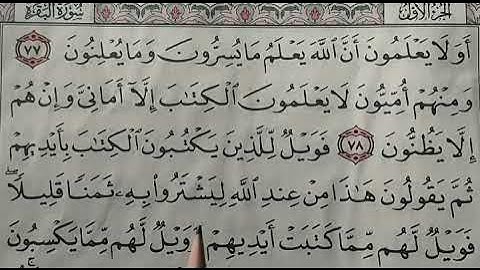 الجزء الأول سورة البقرة
أَوَلَا يَعْلَمُونَ أَنَّ اللَّهَ يَعْلَمُ مَا يُسِرُّونَ وَمَا يُعْلِنُونَ ٧٧
وَمِنْهُمْ أُمِّيُّونَ لَا يَعْلَمُونَ الْكِتَابَ إِلَّا أَمَانِيَّ وَإِنْ هُمْ
إِلَّا يَظُنُّونَ ٧٨ فَوَيْلٌ لِّلَّذِينَ يَكْتُبُونَ الْكِتَابَ بِأَيْدِيهِمْ
ثُمَّ يَقُولُونَ هَٰذَا مِنْ عِندِ اللَّهِ لِيَشْتَرُوا بِهِ ثَمَنًا قَلِيلًا ۖ
فَوَيْلٌ لَّهُم مِّمَّا كَتَبَتْ أَيْدِيهِمْ وَوَيْلٌ لَّهُم مِّمَّا يَكْسِبُونَ